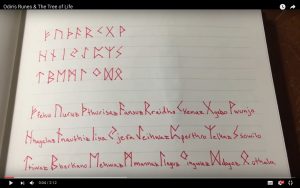 Odin's Runes & The Tree of Life
ᚠ ᚢ ᚦ ᚨ ᚱ ᚲ ᚷ ᚹ
ᚺ ᚾ ᛁ ᛃ ᛇ ᛈ ᛉ ᛊ
ᛏ ᛒ ᛖ ᛗ ᛚ ᛜ ᛞ ᛟ
ᚠfehu ᚢuruz ᚦthurisaz ᚨansuz ᚱraidho ᚲkenaz ᚷgebo ᚹwunjo
ᚺhagalaz ᚾnauthiz ᛁisa ᛃjera ᛇeihwaz ᛈperthro ᛉelhaz ᛊsowilo
ᛏtiwaz ᛒberkano ᛖehwaz ᛗmannaz ᛚlaguz ᛜingwaz ᛞdagaz ᛟothala
0:04 / 3:12